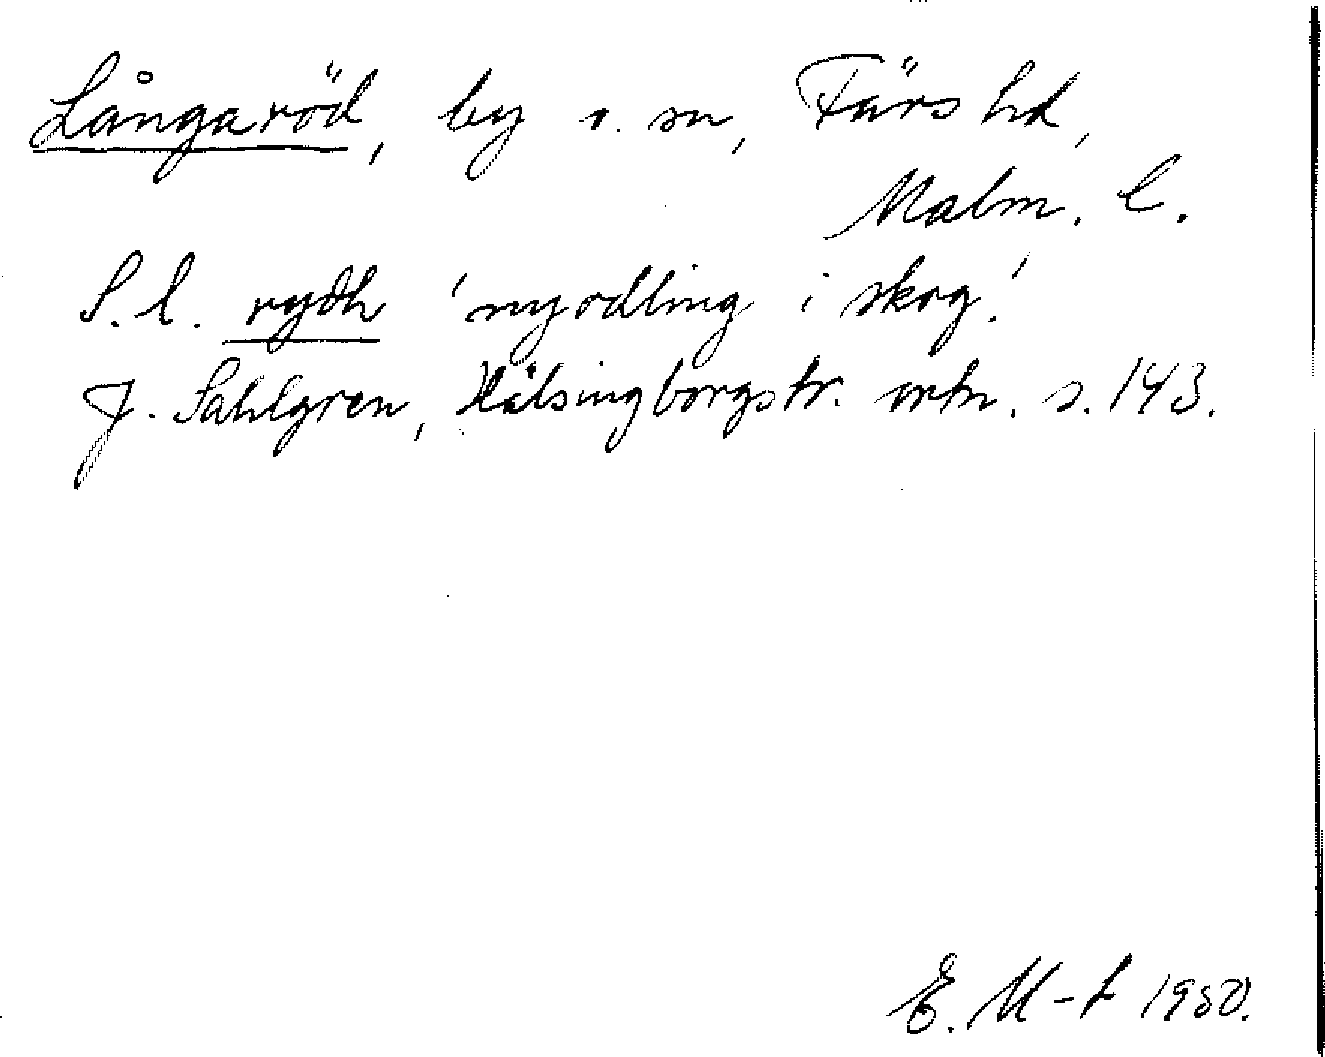 Långaröd, by o. sn, Färs hd,
Malm. l.
S. l. rydh 'nyodling i skog'.
J. Sahlgren, Hälsingborgstr. ortn. s. 143.
E. M-t 1950.